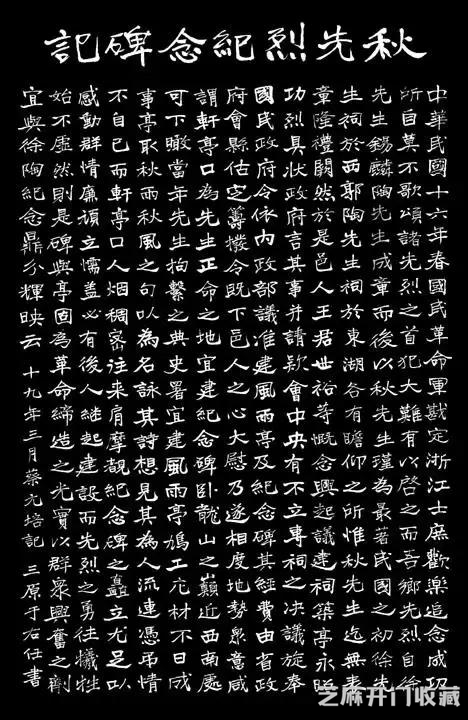 秋先烈紀念碑記
中華民國十六年春國民革命軍戡定浙江士庶歡樂追念成功
所自莫不歌頌諸先烈之首犯大難有以啓之而吾鄉先烈自徐
先生錫麟陶先生成章而後以秋先生瑾為最著民國之初徐先
生祠於西郭陶先生祠於東湖各有瞻仰之所惟秋先生迄無表
章隆禮闕然於是邑人王君世裕等慨念興起議建祠築亭永昭
功烈具狀政府言其事并請欵會中央有不立專祠之决議旋奉
國民政府令依内政部議准建風雨亭及紀念碑其經費由省政
府會縣估定籌撥令既下邑人之心大慰乃遂相度地勢衆意咸
謂軒亭口為先生正命之地宜建紀念碑卧龍山之巔近西南處
可下瞰當年先生拘繫之典史署宜建風雨亭鳩工庀材不日成
事亭取秋雨秋風之句以為名詠其詩想見其為人流連憑弔情
不自已而軒亭口人烟稠密往來肩摩覩紀念碑之矗立尤足以
感動群情廉頑立懦蓋必有後人継起建設而先烈之勇往犧牲
始不虛然則是碑與亭固為革命締造之光實以群衆興奮之劑
宜與徐陶紀念鼎分輝映云 十九年三月蔡元培記 三原于右任書
芝麻开门收藏